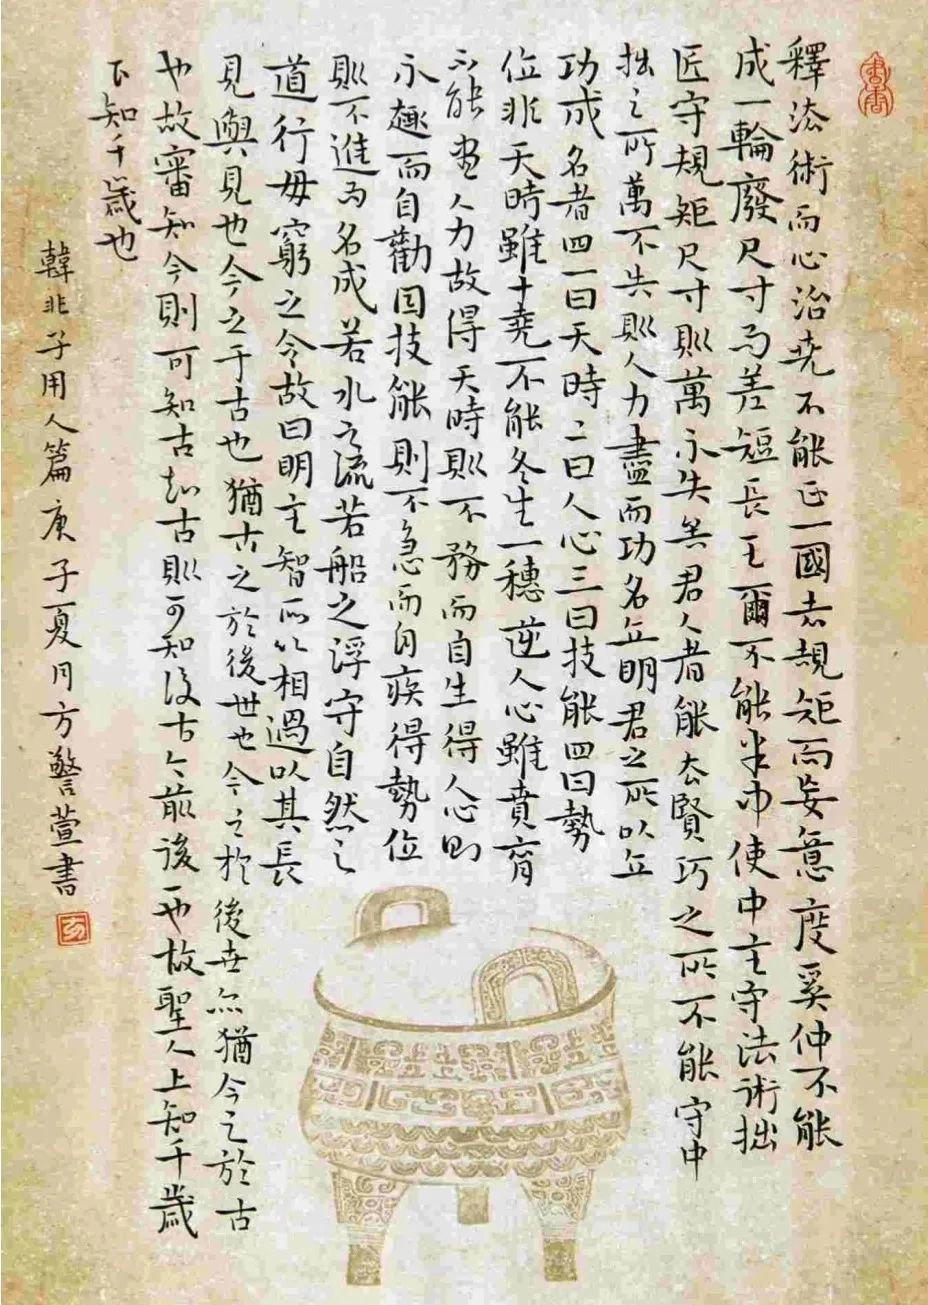 釋法術而心治堯不能正一國去規矩而妄意度奚仲不能
成一輪廢尺寸而差短長王爾不能半中使中主守法術拙
匠守規矩尺寸則萬不失矣君人者能去賢巧之所不能守中
拙之所萬不失則人力盡而功名立明君之所以立
功成名者四一曰天時二曰人心三曰技能四曰勢
位非天時雖十堯不能冬生一穗逆人心雖賁育
不能盡人力故得天時則不務而自生得人心則
不趣而自勸因技能則不急而自疾得勢位
則不進而名成若水之流若船之浮守自然之
道行毋窮之令故曰明主智所以相過以其長
見與見也今之于古也猶古之於後世也今之於後世亦猶今之於古
也故審知今則可知古知古則可知後古今前後也故聖人上知千歲
下知千歲也
韓非子用人篇庚子夏月方警萱書